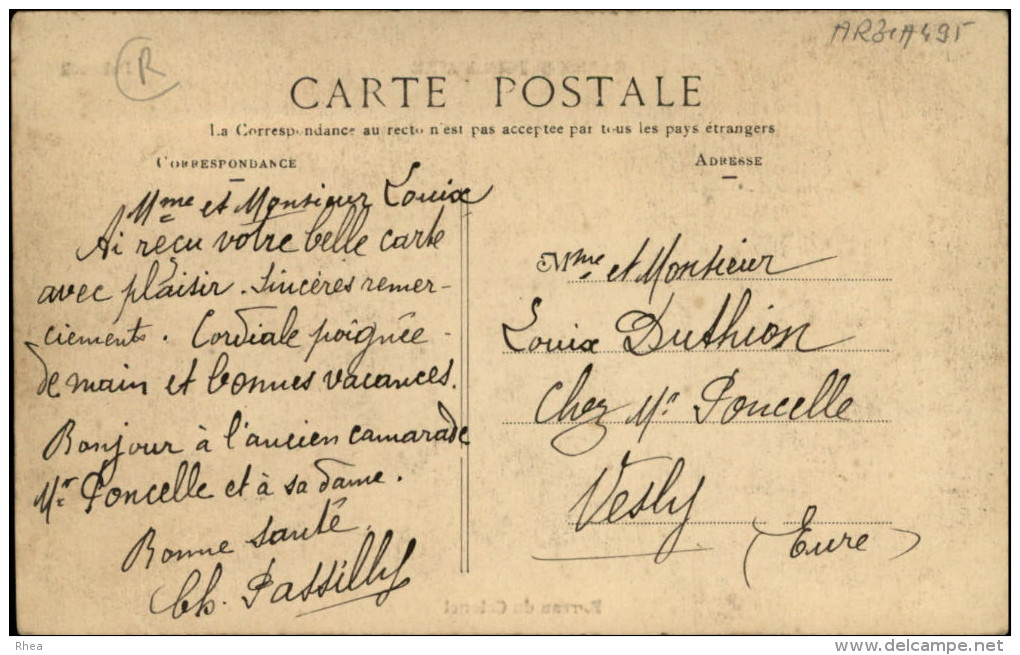 R
CARTE POSTALE
La Correspondance au recto n'est pas acceptee par tous les pays étrangers
CORRESPONDANCE
ADRESSE
Mme et Monsieur Louix
Ai reçu votre belle carte
avec plaisir. Sincères remer-
ciements. Cordiale poignée
de main et bonnes vacances.
Bonjour à l'ancien camarade
Mr Poncelle et à sa dame.
Bonne santé
Ch. Passilly
Mme et Monsieur
Louix Duthion
Chez Mr Poncelle
Vesly
(Eure)
Bureau du Colonel
Rhea
www.delcampe.net